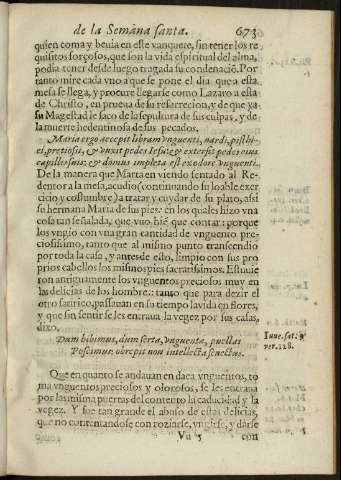 de la Semana santa. 673
quien coma y beuia en este vanquete, sin tener los re
quisitos forçosos, que son la vida espiritual del alma,
podia tener desde luego tragada su condenaciõ. Por
tanto mire cada vno a que se pone el dia que a esta
mesa se llega, y procure llegarse como Lazaro a esta
de Christo, en prueua de su resurreccion, y de que ya
su Magestad le saco de la sepultura de sus culpas, y de
la muerte hedentinosa de sus pecados.
Maria ergo accepit libram vnguenti, nardi, pisthi-
ci, pretiosi, & vnxit pedes Iesu, & extersit pedes eius
capillis suis: & domus impleta est ex odore vnguenti.
De la manera que Marta en viendo sentado al Re-
dentor a la mesa, acudio (continuando su loable exer
cicio y costumbre) a tratar y cuydar de su plato, assi
su hermana Maria de sus pies: en los quales hizo vna
cosa tan señalada, que vuo biẽ que contar: porque
los vngio con vna gran cantidad de vnguento pre-
ciosissimo, tanto que al mismo punto transcendio
por toda la casa, y antes desto, limpio con sus pro
prios cabellos los mismos pies sacratissimos. Estuuie
ron antiguamente los vnguentos preciosos muy en
las delicias de los hombres: tanto que para dezir el
otro satirico, passauan en su tiempo la vida en flores,
y que sin sentir se les entraua la vegez por sus casas,
dixo.
Dum bibimus, dum serta, vnguenta, puellas
Poscimus, obrepit non intellecta senectus.
Iuue. sat. 9
ver. 128.
Que en quanto se andauan en daca vnguentos, to
ma vnguentos preciosos y olorosos, se les entraua
por las misma puertas del contento la caducidad y la
vegez. Y fue tan grande el abuso de estas delicias,
que no contentandose con roziarse, vngirse, y darse
Vu 3 con